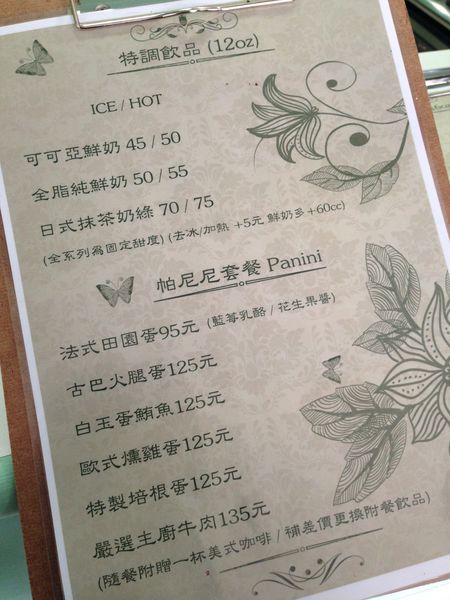 特調飲品 (12oz)
ICE / HOT
可可亞鮮奶 45 / 50
全脂純鮮奶 50 / 55
日式抹茶奶綠 70 / 75
(全系列為固定甜度) (去冰/加熱 +5元 鮮奶多 +60cc)
帕尼尼套餐 Panini
法式田園蛋95元 (藍莓乳酪 / 花生果醬)
古巴火腿蛋125元
白玉蛋鮪魚125元
歐式燻雞蛋125元
特製培根蛋125元
嚴選主廚牛肉135元
(隨餐附贈一杯美式咖啡 / 補差價更換附餐飲品)